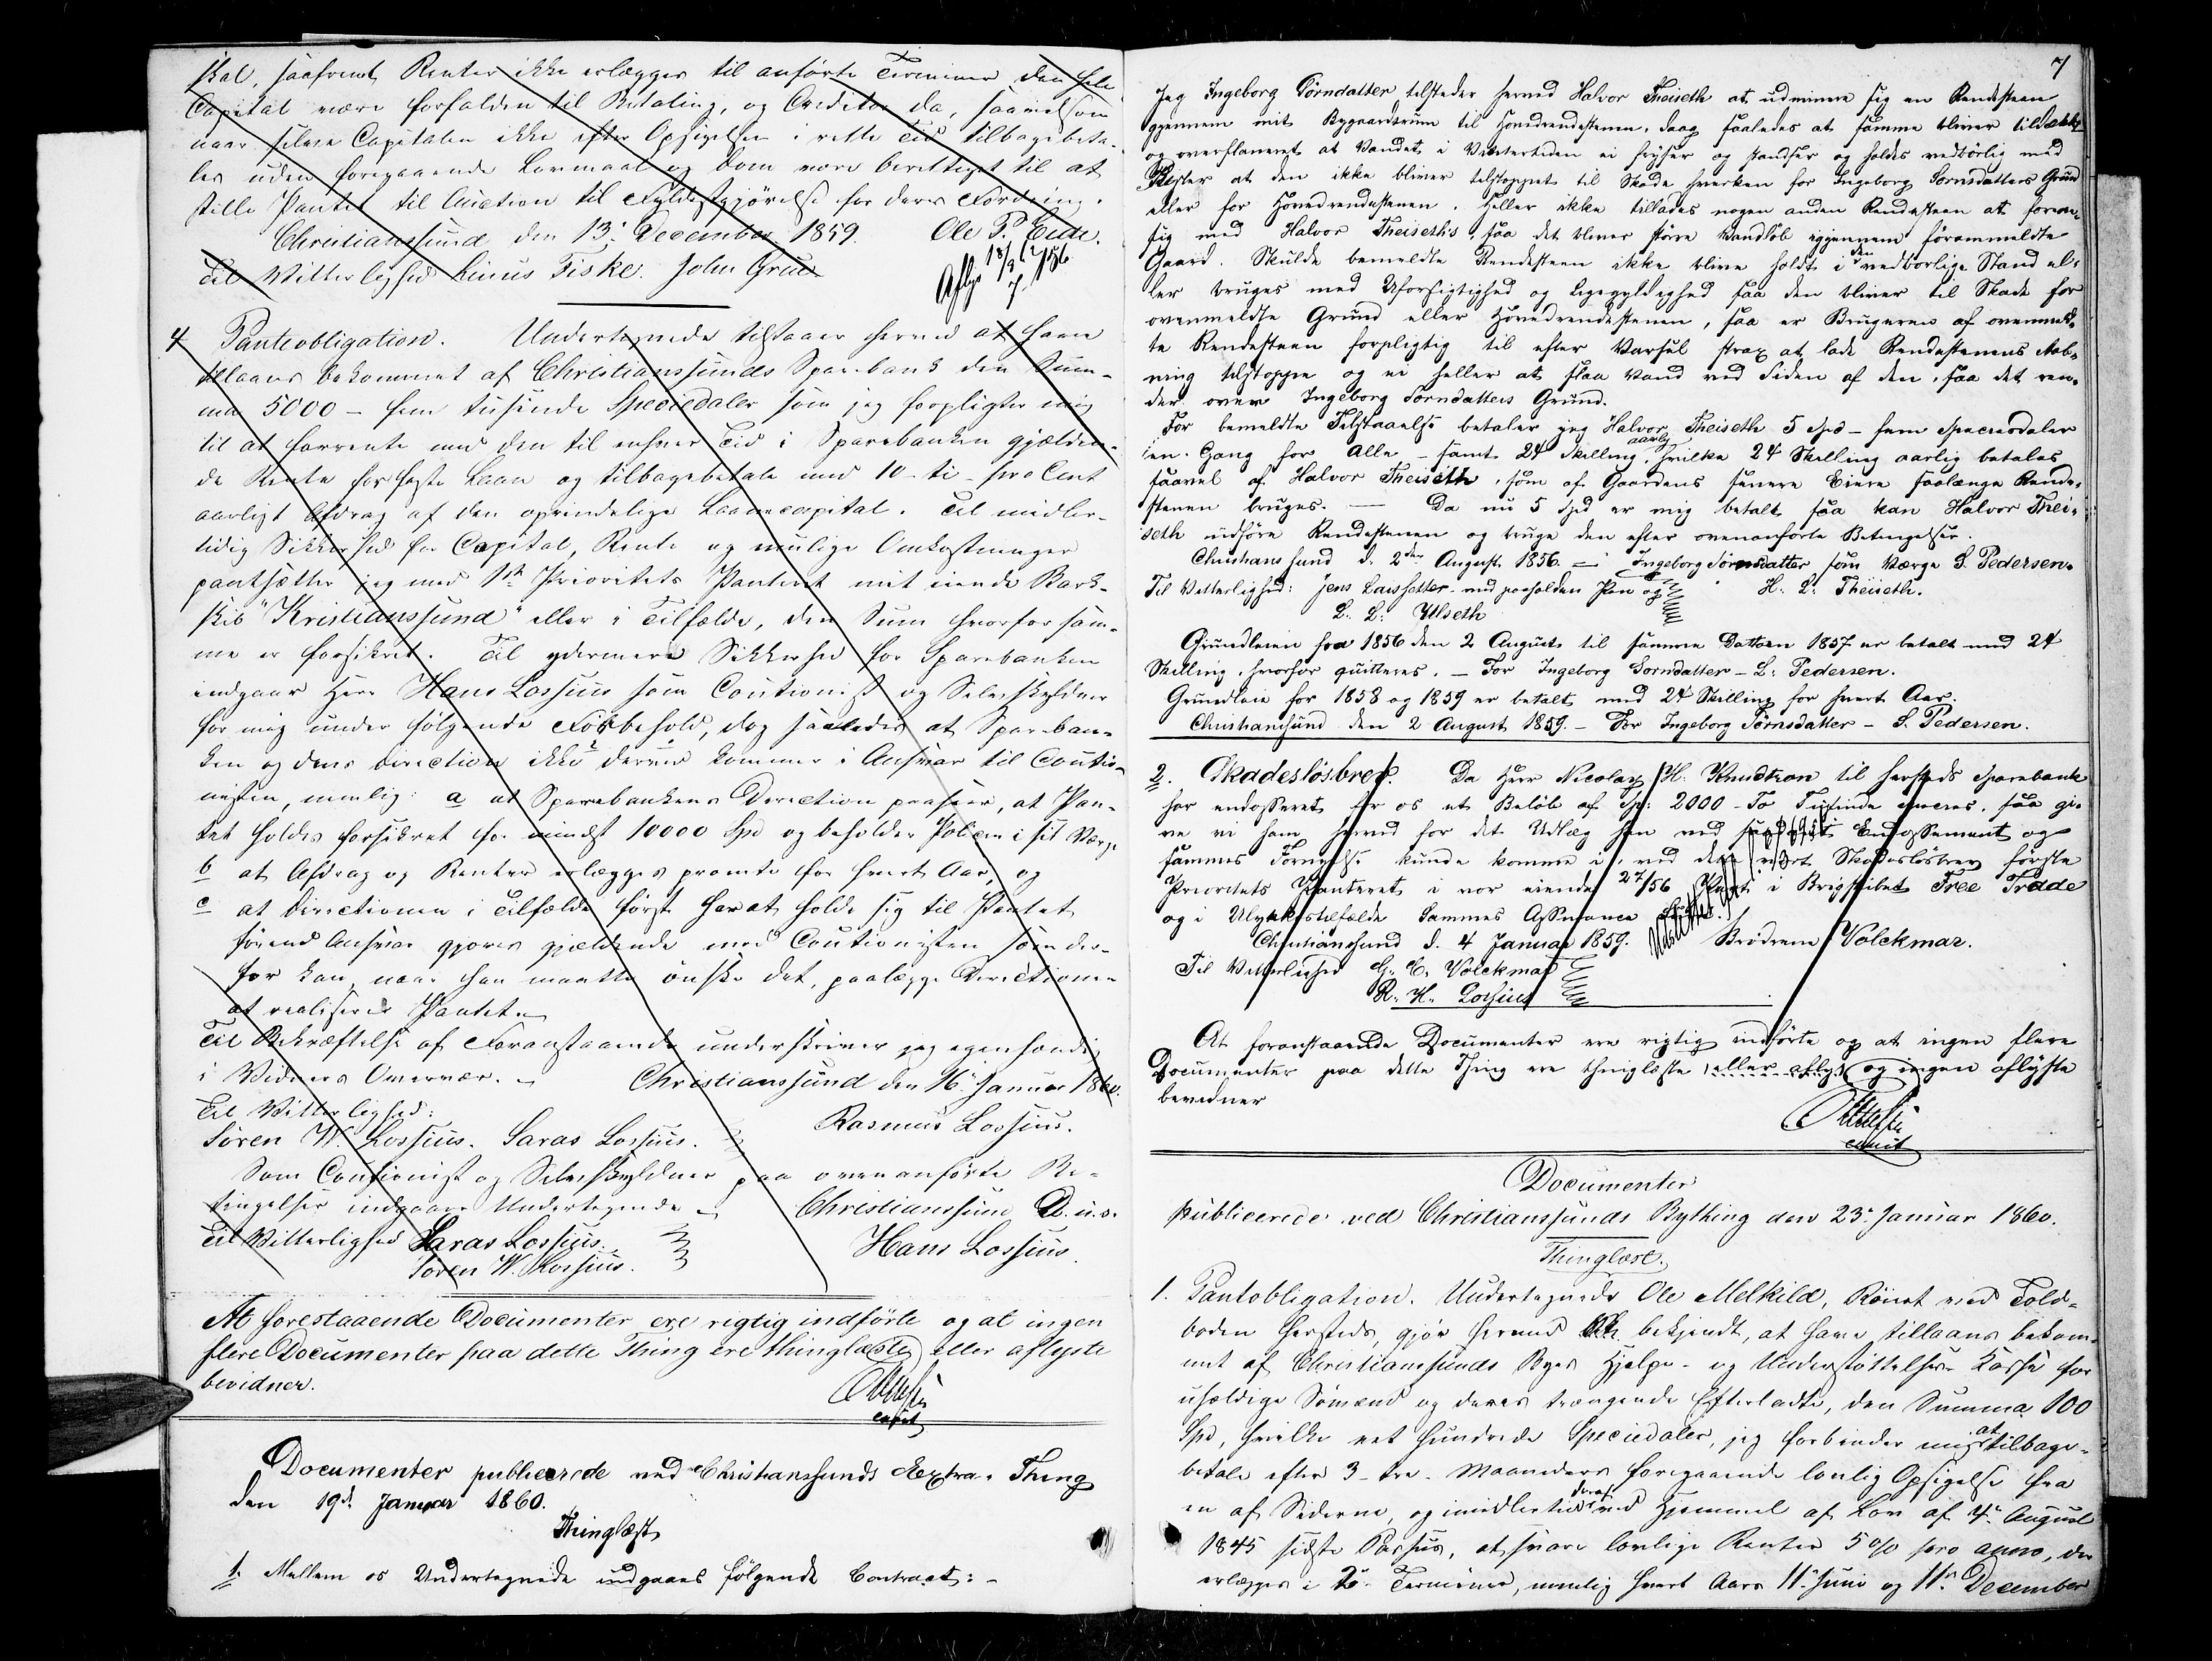 skal, saafremt Renter ikke erlægges til anførte Terminer den hele
Capital være forfalden til Betaling, og Creditor da, saavelsom
naar selve Capitalen ikke efter Opsigelse i rette Tid tilbagebeta-
les uden foregaaende Lovmaal og Dom være berettiget til at
stille Pantet til Auction til Fyldestgjørelse for deres Fordring.
Christianssund den 13: December 1859. Ole P. Eide.
Til Vitterlighed Linus Fiske. John Grue
4 Panteobligation. Undertegnede tilstaaer herved at have
tillaans bekommet af Christianssunds Sparebank den Sum-
ma 5000 - fem tusinde Speciedaler som jeg forpligter mig
til at forrente med den til enhver Tid i Sparebanken gjælden-
de Rente for faste Laan og tilbagebetale med 10 - ti - pro Cent
aarligt Afdrag af den oprindelige Laanecapital. Til midler-
tidig Sikkerhed for Capital, Rente og mulige Omkostninger
pantsætter jeg med 1ste Prioritets Panteret mit eiende Bark-
skib "Kristianssund" eller i Tilfælde, den Sum hvorfor sam-
me er forsikret. Til ydermere Sikkerhed for Sparebanken
indgaar Herr Hans Lossius som Coutionist og Selvskyldner
for mig under følgende Forbehold, dog saaledes at Spareban-
ken og dens Direction ikke derved kommer i Ansvar til Coutio-
nisten, nemlig: a at Sparebankens Direction paaseer, at Pan-
tet holdes forsikret for mindst 10000 Spd og beholder Policen i sit Værge
b at Afdrag og Renter erlægges promte for hvert Aar, og
c at Directionen i Tilfælde først har at holde sig til Pantet
førend Ansvar gjøres gjældende mod Coutionisten som der-
for kan, naar han maatte ønske det, paalægge Directionen
at realisere Pantet.
Til Bekræftelse af Foranstaaende underskriver jeg egenhændig
i Vidners Overvær. Christianssund den 16. Januar 1860.
Til Vitterlighed:
Søren W. Lossius. Saras Lossius. Rasmus Lossius.
Som Coutionist og Selvskyldner paa ovenanførte Be-
tingelser indgaaer Undertegnede Christianssund D. u. s.
Til Vitterlighed Saras Lossius. Hans Lossius.
Søren W. Lossius.
At forestaaende Documenter ere rigtig indførte og at ingen
flere Documenter paa dette Thing ere thinglæste eller aflyste
bevidner.
const
Documenter publicerede ved Christianssunds Extra-Thing
den 19d. Januar 1860.
Thinglæst
1. Mellem os Undertegnede indgaaes følgende Contract: -
7
Jeg Ingeborg Tørnsdatter tilsteder herved Halvor Theiseth at udminere sig en Rendesteen
gjennem mit Bygaardsrum til Hovedrendestenen, dog saaledes at samme bliver tildækket
og overplaneret at Vandet i Vintertiden ei fryser og standser og holdes vedbørlig med
Rister at den ikke bliver tilstoppet til Skade hverken for Ingeborg Tornsdatters Grund
eller for Hovedrendestenen. Heller ikke tillades nogen anden Rendesteen at forene
sig med Halvor Theiseths, saa det bliver større Vandløb igjennem førommeldte
Gaard. Skulde bemeldte Rendesteen ikke blive holdt i den vedbørlige Stand el-
ler bruges med Uforsigtighed og Ligegyldighed saa den bliver til Skade for
ovenmeldte Grund eller Hovedrendestenen, saa er Brugeren af ovenmeld-
te Rendesteen forpligtig til efter Varsel strax at lade Rendestenens Aab-
ning tilstoppe og ei heller at slaa Vand ved Siden af den, saa det ren-
der over Ingeborg Tørnsdatters Grund.
For bemeldte Tilstaaelse betaler jeg Halvor Theiseth 5 Spd - fem Speciesdaler
een Gang for Alle - samt 24 Skilling aarlig, hvilke 24 Skilling aarlig betales
saavel af Halvor Theiseth, som af Gaardens senere Eiere saalænge Rende-
stenen bruges. - Da nu 5 Spd er mig betalt saa kan Halvor Thei-
seth udføre Rendestenen og bruge den efter ovenanførte Betingelser.
Christianssund d. 2den August 1856. - Ingeborg Tørnsdatter som Værge S. Pedersen.
Til Vitterlighed: Jens Larssetter med paaholden Pen og H. L. Theiseth.
L. L. Ulseth
Grundleien fra 1856 den 2 August til samme Datoen 1857 er betalt med 24
Skilling, hvorfor quitteres. - For Ingeborg Tornsdatter - L. Pedersen.
Grundleie for 1858 og 1859 er betalt med 24 Skilling for hvert Aar.
Christianssund den 2 August 1859. - For Ingeborg Tørnsdatter - S. Pedersen.
2. Skadesløsbrev. Da Herr Nicolay H. Knudtzon til hersteds Sparebank
har endosseret for os et Beløb af Sp: 2000 - To Tusinde species, saa gi-
ve vi ham herved for det Udlæg han ved Endossement og
sammes Fornyelse kunde komme i, ved dette vort Skadesløsbrev første
Prioritets Panteret i vor eiende 27/56 Part i Brigskibet Free Trade
og i Ulykkestilfælde Sammes Assurance
Christianssund d. 4 Januar 1859. Brødrene Volckmar.
Til Vitterlighed G. C. Volckmar
R. H. Lossius
At foranstaaende Documenter ere rigtig indførte og at ingen flere
Documenter paa dette Thing ere thinglæste eller aflyst og ingen aflyste
bevidner
const
Documenter
publicerede ved Christianssunds Bything den 23. Januar 1860.
Thinglæst.
1. Pantobligation. Undertegnede Ole Melkild, Rönet ved Told-
boden hersteds, gjør herved bekjendt, at have tillaans bekom-
met af Christianssunds Byes Hjelpe- og Understøttelses Kasse for
uheldige Sømænd og deres trængende Efterladte, den Summa 100
Spd, hvilke eet hundrede Speciedaler, jeg forbinder mig at tilbage-
betale efter 3 - tre - Maaneders foregaaende lovlig Opsigelse fra
en af Siderne, og imidlertid deraf ved Hjemmel af Lov af 4. August
1845 sidste Passus, at svare lovlige Renter 5 % pro anno, der
erlægges i 2. Terminer, nemlig hvert Aars 11. Juni og 11. December